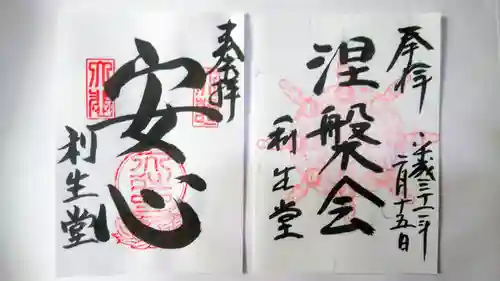 奉拝
安心
利生堂
奉拝
涅槃会
利生堂
平成三十一年
二月十五日